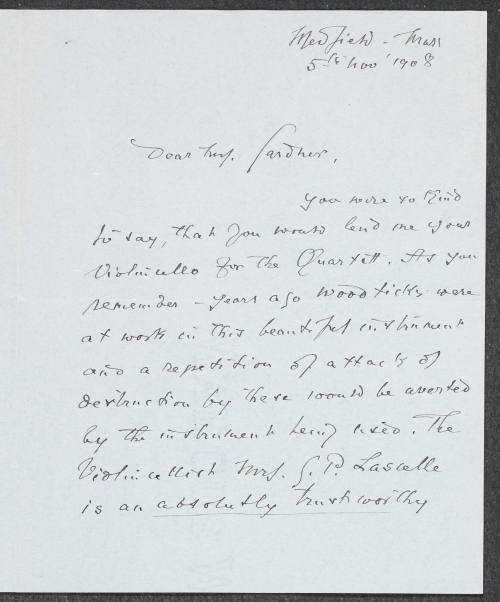 Medfield - Mass
5th Nov' 1908
Dear Mrs. Gardner,
you were so kind
to say, that you would lend me your
Violincello for the Quartett. As you
remember - years ago wood ticks were
at work in this beautiful instrument
and a repetition of attacks of
destruction by these would be averted
by the instrument being used. The
Violincellist Mrs. G. P. Lascelle
is an absolutely trustworthy